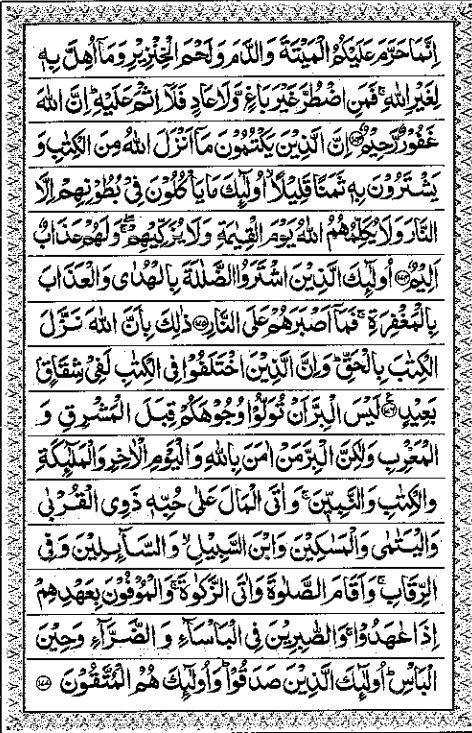 اِنَّمَا حَرَّمَ عَلَيۡكُمُ الۡمَيۡتَةَ وَالدَّمَ وَلَحۡمَ الۡخِنۡزِيۡرِ وَمَآ اُهِلَّ بِهٖ
لِغَيۡرِ اللّٰهِۚ فَمَنِ اضۡطُرَّ غَيۡرَ بَاغٍ وَّلَا عَادٍ فَلَاۤ اِثۡمَ عَلَيۡهِؕ اِنَّ اللّٰهَ
غَفُوۡرٌ رَّحِيۡمٌ ﴿۱۷۳﴾ اِنَّ الَّذِيۡنَ يَكۡتُمُوۡنَ مَآ اَنۡزَلَ اللّٰهُ مِنَ الۡكِتٰبِ وَ
يَشۡتَرُوۡنَ بِهٖ ثَمَنًا قَلِيۡلًاۙ اُولٰٓئِكَ مَا يَاۡكُلُوۡنَ فِىۡ بُطُوۡنِهِمۡ اِلَّا
النَّارَ وَلَا يُکَلِّمُهُمُ اللّٰهُ يَوۡمَ الۡقِيٰمَةِ وَلَا يُزَکِّيۡهِمۡۖۚ وَلَهُمۡ عَذَابٌ
اَلِيۡمٌ ﴿۱۷۴﴾ اُولٰٓئِكَ الَّذِيۡنَ اشۡتَرَوُا الضَّلٰلَةَ بِالۡهُدٰى وَالۡعَذَابَ
بِالۡمَغۡفِرَةِۚ فَمَآ اَصۡبَرَهُمۡ عَلَى النَّارِ ﴿۱۷۵﴾ ذٰلِكَ بِاَنَّ اللّٰهَ نَزَّلَ
الۡکِتٰبَ بِالۡحَقِّؕ وَاِنَّ الَّذِيۡنَ اخۡتَلَفُوۡا فِى الۡكِتٰبِ لَفِىۡ شِقَاقٍۢ
بَعِيۡدٍ ﴿۱۷۶﴾ لَيۡسَ الۡبِرَّ اَنۡ تُوَلُّوۡا وُجُوۡهَكُمۡ قِبَلَ الۡمَشۡرِقِ وَ
الۡمَغۡرِبِ وَلٰـكِنَّ الۡبِرَّ مَنۡ اٰمَنَ بِاللّٰهِ وَالۡيَوۡمِ الۡاٰخِرِ وَالۡمَلٰٓئِکَةِ
وَالۡكِتٰبِ وَالنَّبِيّٖنَۚ وَاٰتَى الۡمَالَ عَلٰى حُبِّهٖ ذَوِى الۡقُرۡبٰى
وَالۡيَتٰمٰى وَالۡمَسٰكِيۡنَ وَابۡنَ السَّبِيۡلِۙ وَالسَّآئِلِيۡنَ وَفِى
الرِّقَابِۚ وَاَقَامَ الصَّلٰوةَ وَاٰتَى الزَّکٰوةَۚ وَالۡمُوۡفُوۡنَ بِعَهۡدِهِمۡ
اِذَا عٰهَدُوۡاۚ وَالصّٰبِرِيۡنَ فِى الۡبَاۡسَآءِ وَ الضَّرَّآءِ وَحِيۡنَ
الۡبَاۡسِؕ اُولٰٓئِكَ الَّذِيۡنَ صَدَقُوۡاؕ وَاُولٰٓئِكَ هُمُ الۡمُتَّقُوۡنَ ﴿۱۷۷﴾